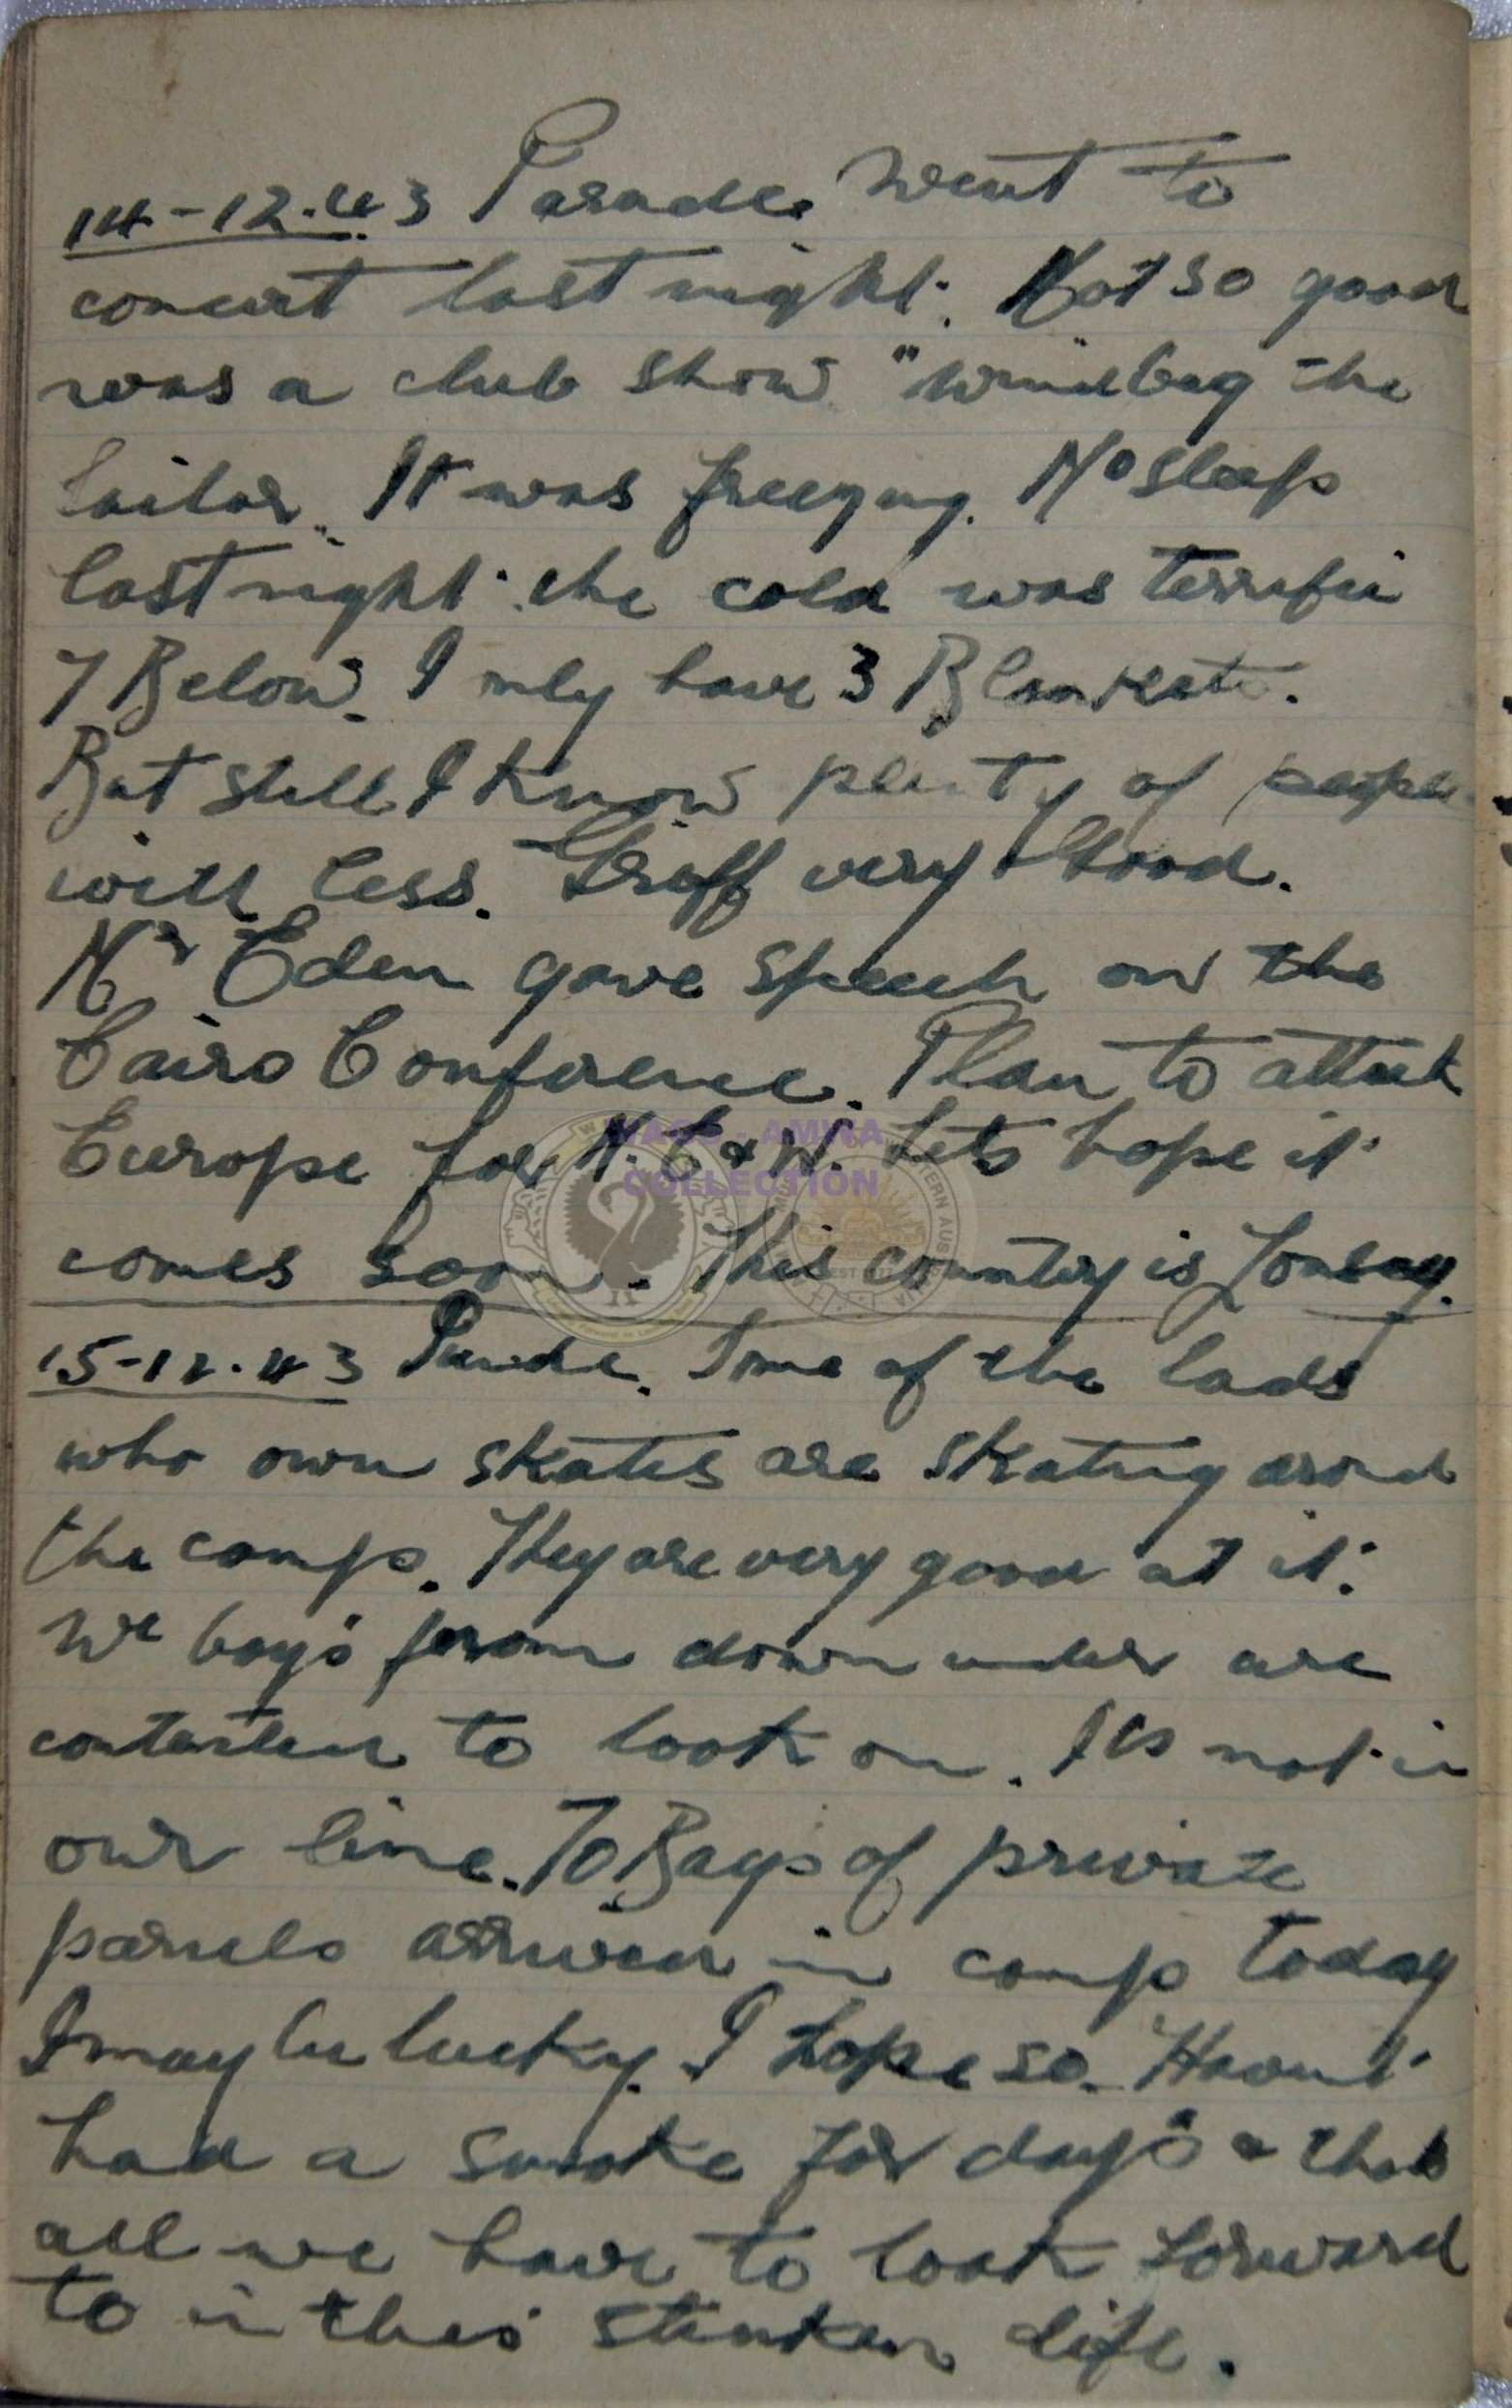 14-12.43 Parade. Went to
concert last night. Not so good
was a club show "Windbag the
Sailor". It was freezing. No sleep
last night. the cold was terrific
7 Below. I only have 3 Blankets.
But still I know plenty of people
with less. Griff very Good.
Mr Eden gave speech on the
Cairo Conference. Plan to attack
Europe for N. E & W. Lets hope it
comes soon. This country is
15-12.43 Parade. Some of the lads
who own skates are skating arond
the camp. They are very good at it.
We boys from down under are
contented to look on. Its not in
our line. 70 Bags of private
parcels arrived in camp today
I may be lucky. I hope so. Havent
had a smoke for days & thats
all we have to look forward
to in this stinken life.
WAGS - AMWA
COLLECTION